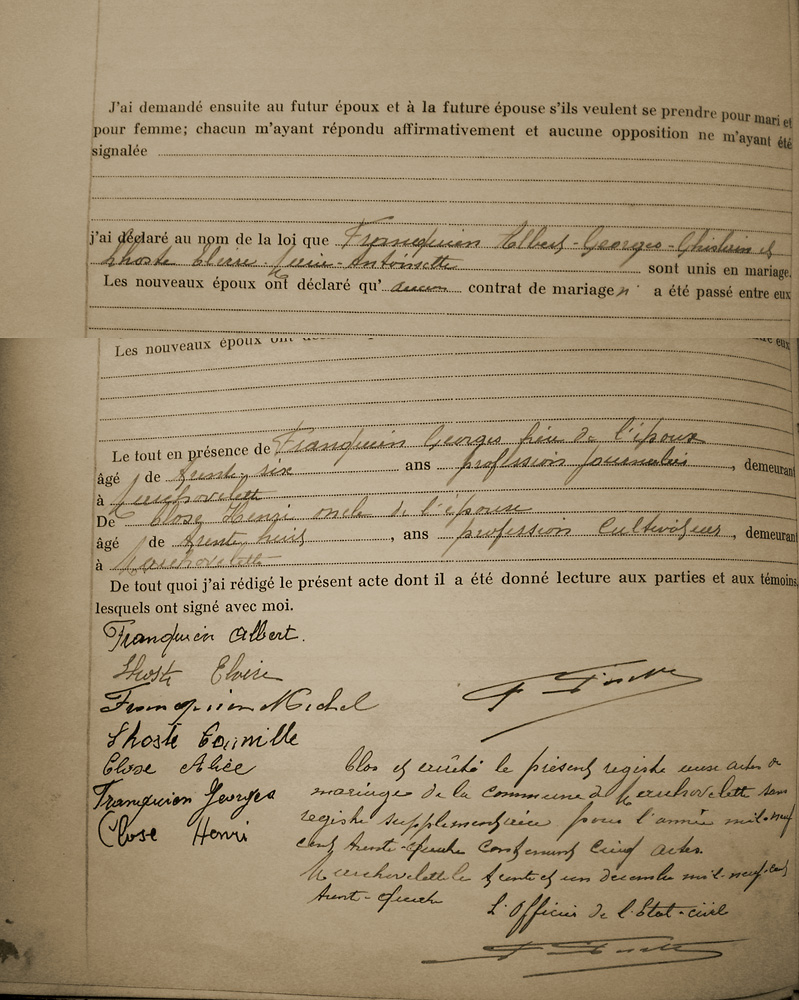 J'ai demandé ensuite au futur époux et à la future épouse s'ils veulent se prendre pour mari et
pour femme; chacun m'ayant répondu affirmativement et aucune opposition ne m'ayant été
signalée
j'ai déclaré au nom de la loi que Franquien Albert-Georges-Ghislain et
Lhoste Eloire-Marie-Antoinette sont unis en mariage.
Les nouveaux époux ont déclaré qu' aucun contrat de mariage n' a été passé entre eux
Les nouveaux époux ont eux
Le tout en présence de Franquien Georges frère de l'époux
âgé de trente six ans profession journalier, demeurant
à Marchovelette
De Close Henri oncle de l'épouse
âgé de trente huit, ans profession cultivateur, demeurant
à Marchovelette
De tout quoi j'ai rédigé le présent acte dont il a été donné lecture aux parties et aux témoins,
lesquels ont signé avec moi.
Franquien Albert.
Lhoste Eloire
Franquien Michel
Lhoste Camille
Close Alice
Franquien Georges
Close Henri
Clos et arrêté le présent registre aux actes de
mariages de la commune de Marchovelette sans
registre supplémentaire pour l'année mil-neuf
cent trente-quatre contenant cinq actes.
Marchovelette le trente et un décembre mil-neuf-cent
trente-quatre
L'Officier de l'Etat-civil